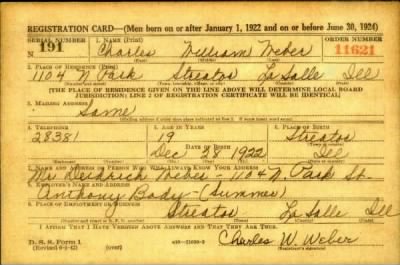 REGISTRATION CARD—(Men born on or after January 1, 1922 and on or before June 30, 1924)
SERIAL NUMBER 1. NAME (Print) ORDER NUMBER
191 Charles William Weber 11621
2. PLACE OF RESIDENCE (Print)
1104 N Park Streator La Salle Ill
[THE PLACE OF RESIDENCE GIVEN ON THE LINE ABOVE WILL DETERMINE LOCAL BOARD
JURISDICTION; LINE 2 OF REGISTRATION CERTIFICATE WILL BE IDENTICAL]
3. MAILING ADDRESS
Same
4. TELEPHONE 5. AGE IN YEARS 6. PLACE OF BIRTH
28381 19 Streator
DATE OF BIRTH
Dec 24 1922 Ill
7. NAME AND ADDRESS OF PERSON WHO WILL ALWAYS KNOW YOUR ADDRESS
Mr Weber—1104 N. Park St.
8. EMPLOYER'S NAME AND ADDRESS
Anthony Body—(Summer)
9. PLACE OF EMPLOYMENT OR BUSINESS
Streator La Salle Ill
I AFFIRM THAT I HAVE VERIFIED ABOVE ANSWERS AND THAT THEY ARE TRUE.
D. S. S. Form 1
(Revised 6-9-42) (over) Charles W. Weber
(Registrant's signature)